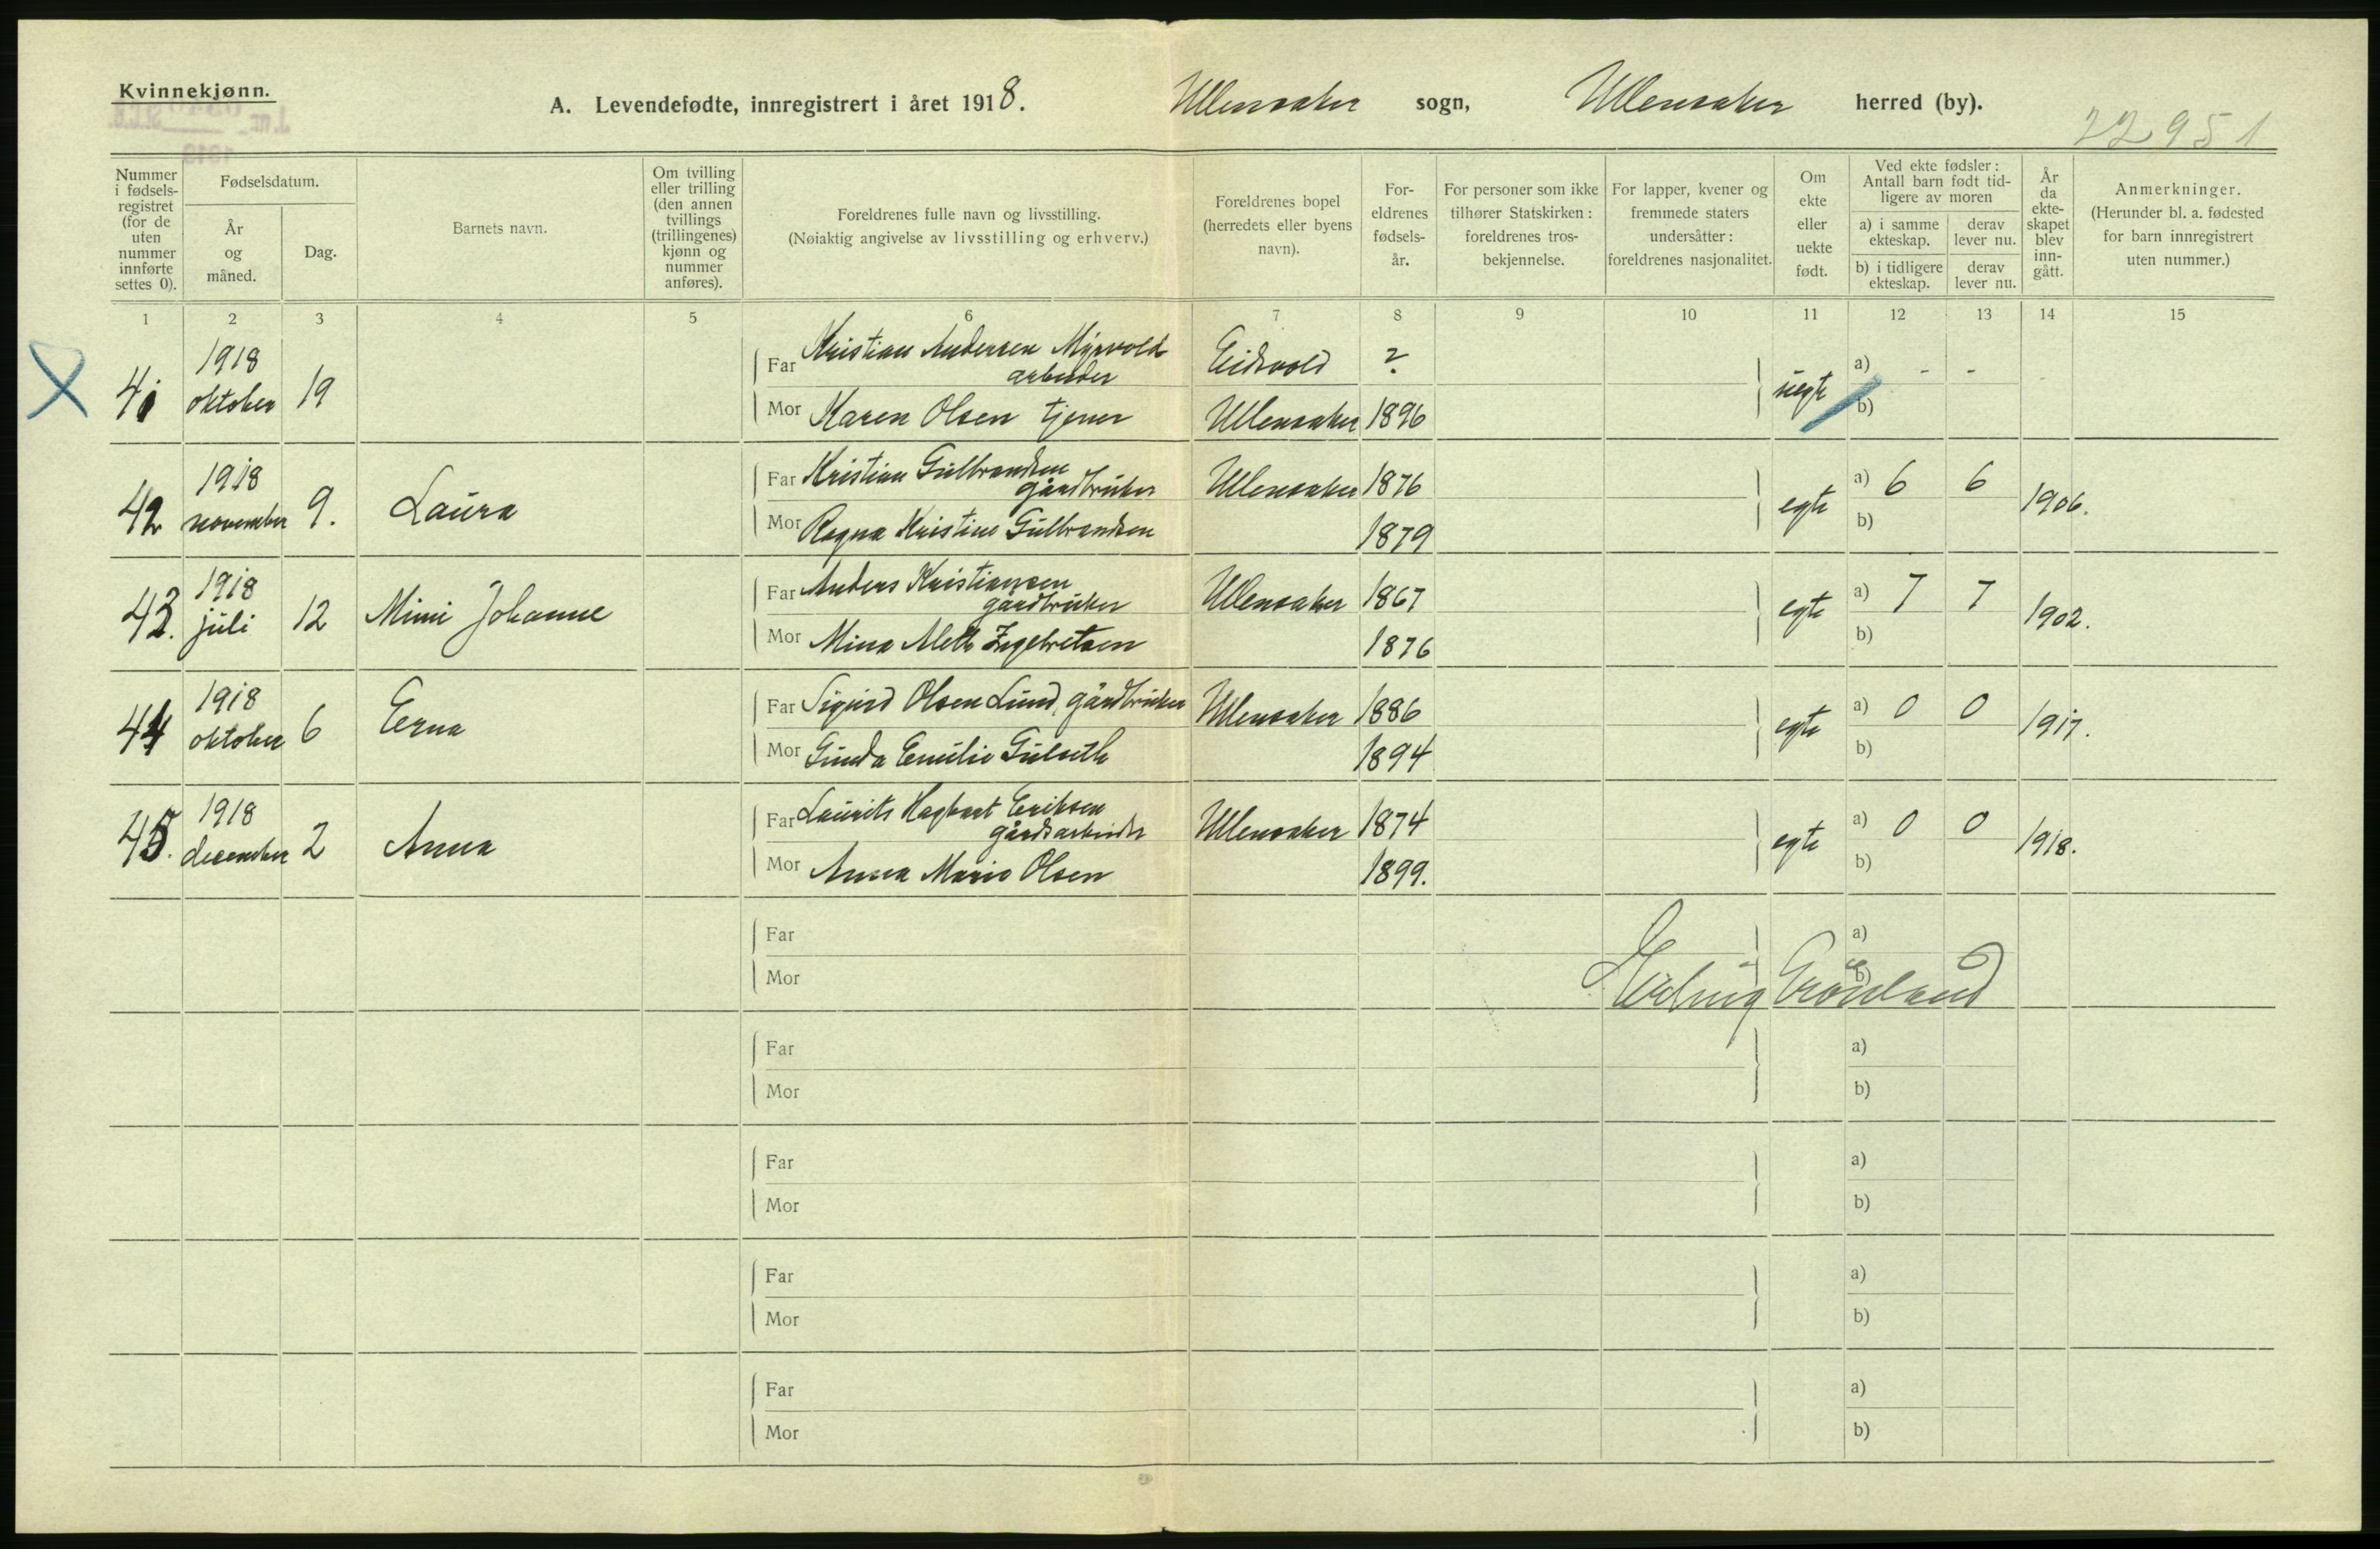 Kvinnekjønn.
A. Levendefødte, innregistrert i året 1918. Ullensaker sogn, Ullensaker herred (by).
22951
Nummer i fødsels-registret (for de uten nummer innførte settes 0).
Fødselsdatum.
År og måned.
Dag.
Barnets navn.
Om tvilling eller trilling (den annen tvillings (trillingenes) kjønn og nummer anføres).
Foreldrenes fulle navn og livsstilling.
(Nøiaktig angivelse av livsstilling og erhverv.)
Foreldrenes bopel (herredets eller byens navn).
For-eldrenes fødsels-år.
For personer som ikke tilhører Statskirken: foreldrenes tros-bekjennelse.
For lapper, kvener og fremmede staters undersåtter: foreldrenes nasjonalitet.
Om ekte eller uekte født.
Ved ekte fødsler: Antall barn født tid-ligere av moren
a) i samme ekteskap. derav lever nu.
b) i tidligere ekteskap. derav lever nu.
År da ekte-skapet blev inn-gått.
Anmerkninger.
(Herunder bl. a. fødested for barn innregistrert uten nummer.)
1 2 3 4 5 6 7 8 9 10 11 12 13 14 15
41 1918 oktober 19
Far Kristian Andersen Myrvold arbeider Eidsvold ? uegte a) - -
Mor Karen Olsen tjener Ullensaker 1896 b)
42 1918 november 9. Laura
Far Kristian Gulbrandsen gårdbruker Ullensaker 1876 egte a) 6 6 1906.
Mor Ragna Kristine Gulbrandsen 1879 b)
43. 1918 juli 12 Mimi Johanne
Far Anders Kristiansen gårdbruker Ullensaker 1867 egte a) 7 7 1902.
Mor Mina Aleth Ingebretsen 1876 b)
44 1918 oktober 6 Erna
Far Sigurd Olsen Lund, gårdbruker Ullensaker 1886 egte a) 0 0 1917.
Mor Gunda Emilie 1894 b)
45. 1918 december 2 Anna
Far Laurits Hagbart Eriksen gårdsarbeider Ullensaker 1874 egte a) 0 0 1918.
Mor Anna Marie Olsen 1899. b)
Far a)
Mor b)
Erling Grönland
Far a)
Mor b)
Far a)
Mor b)
Far a)
Mor b)
Far a)
Mor b)